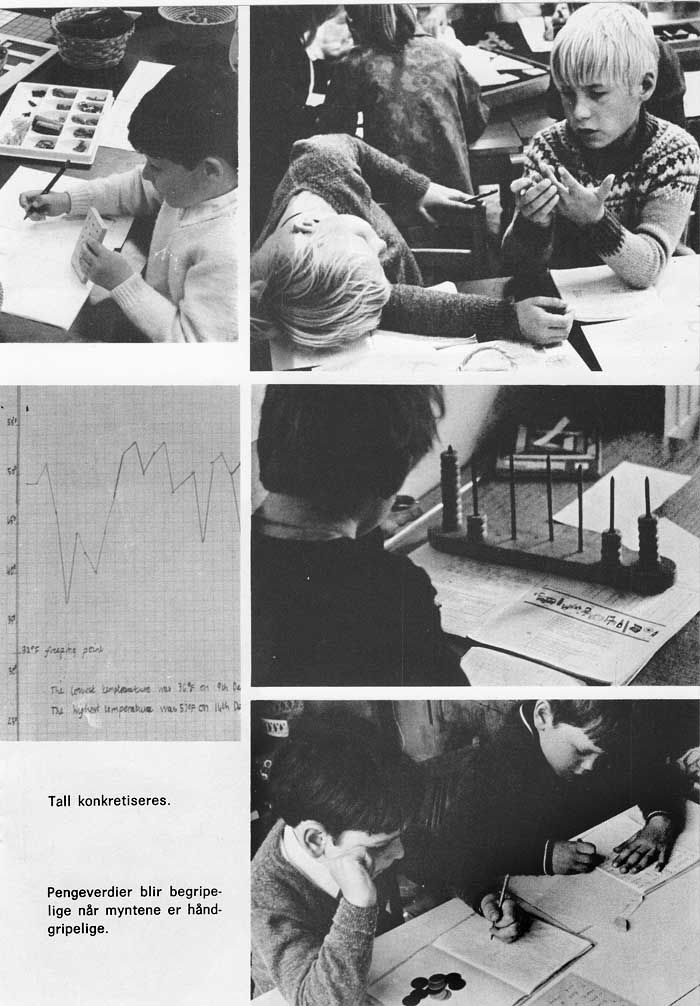 55°
50°
45°
40°
35°
32°F freezing point
30°
The lowest temperature was 36°F on 9th De
The highest temperature was 53°F on
25°
Tall konkretiseres.
Pengeverdier blir begripe-
lige når myntene er hånd-
gripelige.